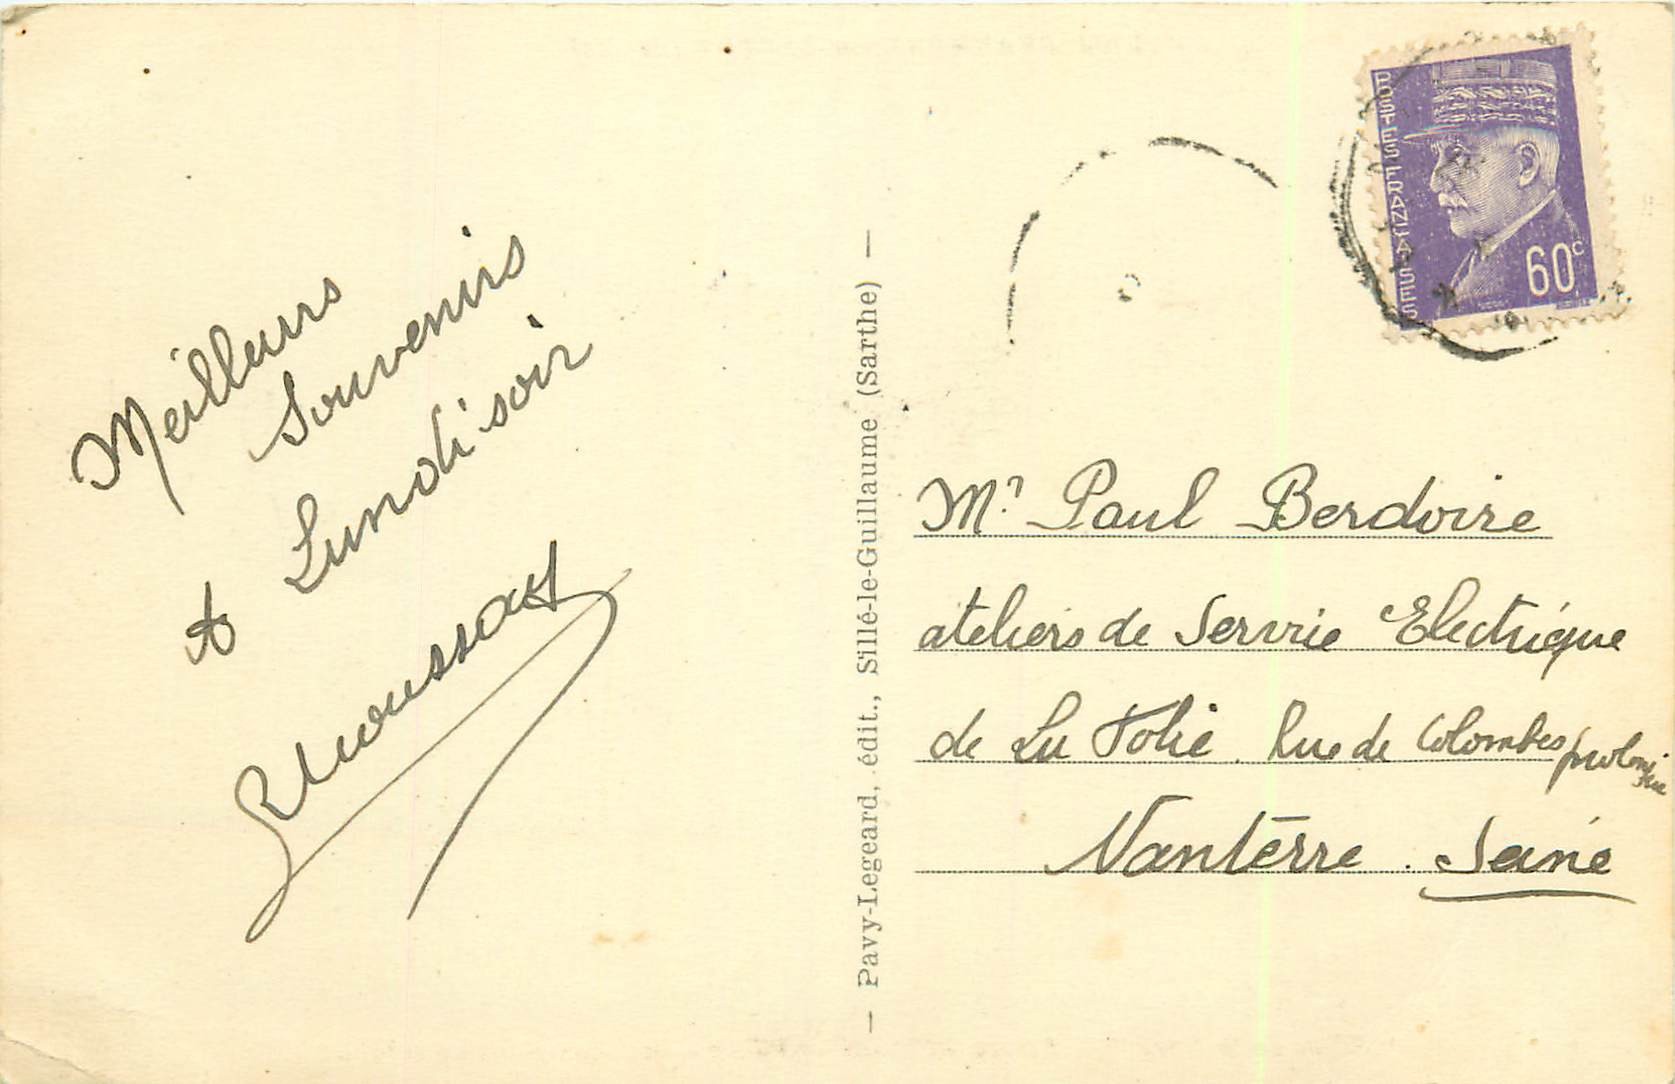 Meilleurs
Souvenirs
A Lundi soir
— Pavy-Legeard, édit., Sillé-le-Guillaume (Sarthe) —
POSTES FRANÇAISES
60c
Mr Paul Berdoire
ateliers de Service Electrique
de La Folie. Rue de Colombes
Nanterre. Seine